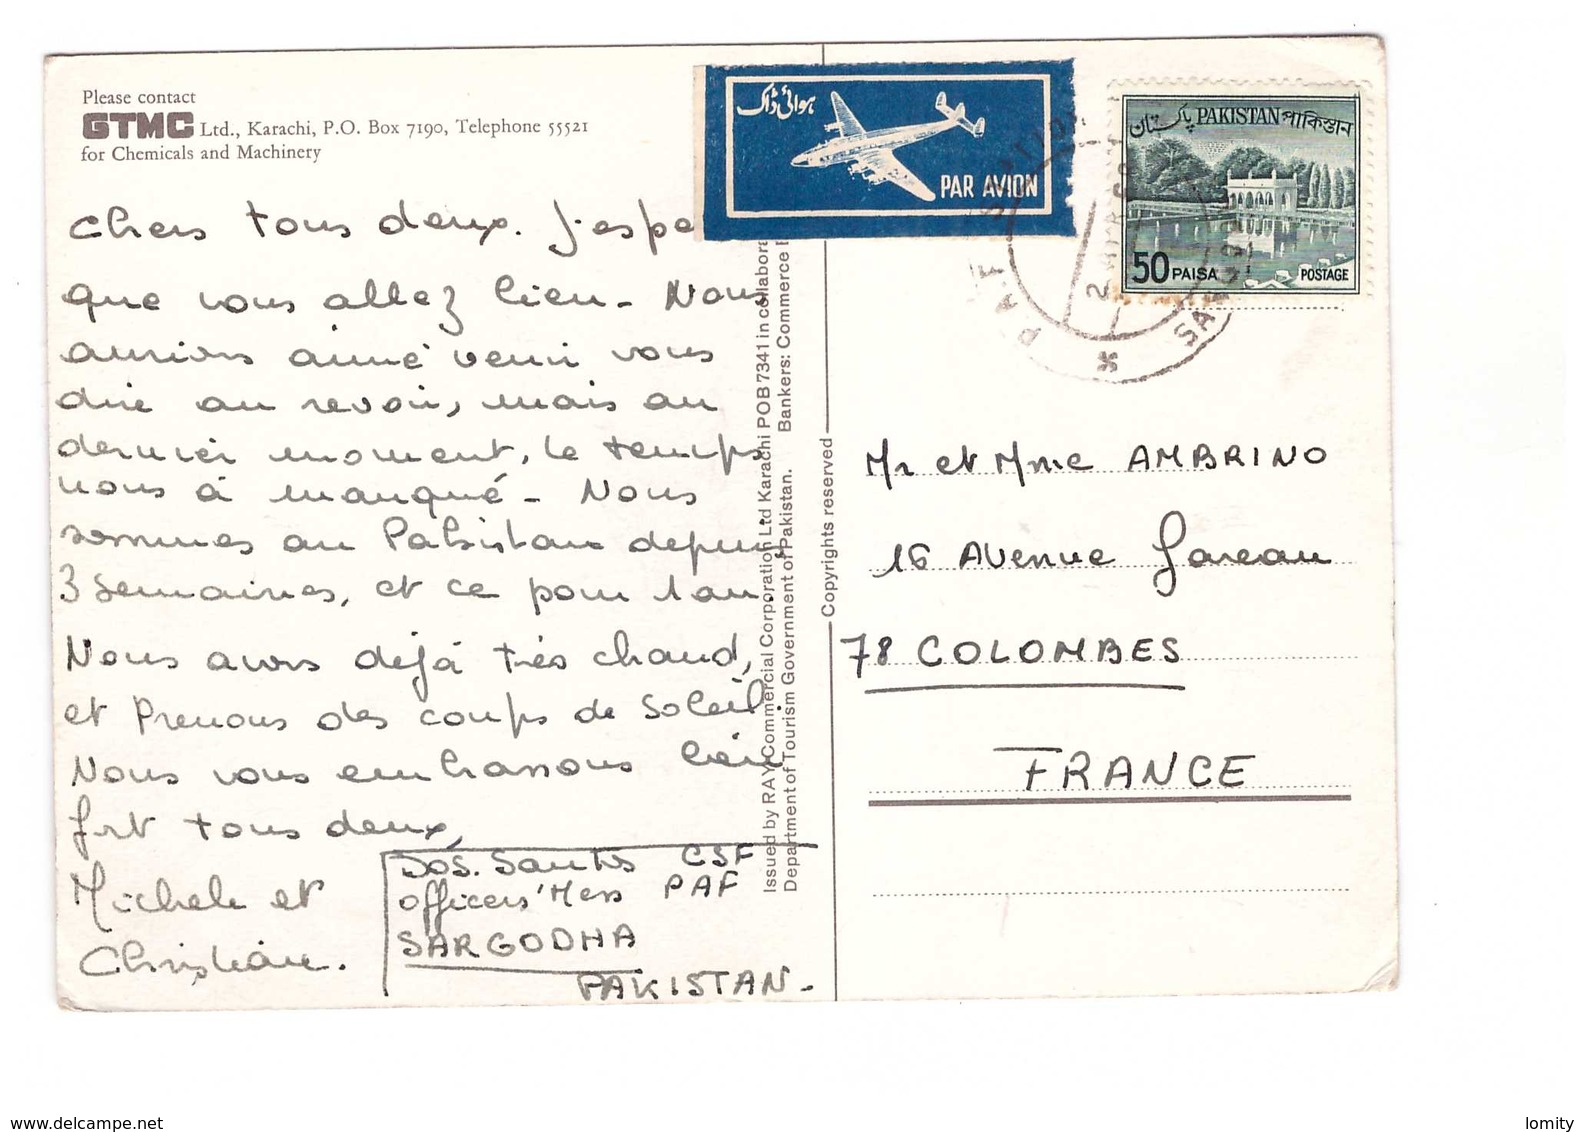 Please contact
GTMC Ltd., Karachi, P.O. Box 7190, Telephone 55521
for Chemicals and Machinery
Chers tous deux. J'espe
que vous allez bien - Nous
aurions aimé venir vous
dire au revoir, mais au
dernier moment, le temps
nous a manqué - Nous
sommes au Pakistan depuis
3 semaines, et ce pour 1 an.
Nous avons déjà très chaud,
et prenons des coups de soleil
Nous vous embrassons bien
fort tous deux,
Michele et
Christiane.
Dos. Santos CSF
officers' Mess PAF
SARGODHA
PAKISTAN -
Issued by RAY Commercial Corporation Ltd Karachi POB 7341 in collabora
Department of Tourism Government of Pakistan. Bankers: Commerce B
Copyrights reserved
ہوائی ڈاک
PAR AVION
پاکستان PAKISTAN পাকিস্তান
50 PAISA POSTAGE
P.A.F STATION
SARGODHA
Mr et Mme AMBRINO
16 Avenue Gareau
78 COLOMBES
FRANCE
www.delcampe.net
lomity